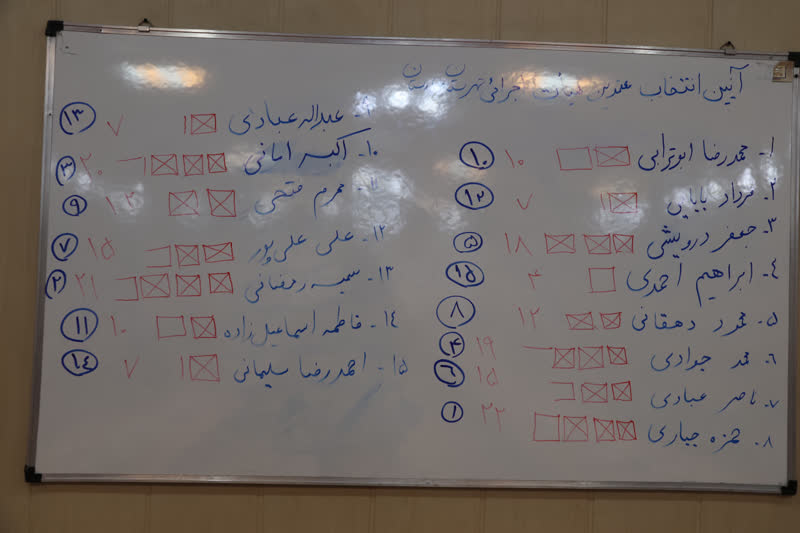 آیین انتخاب معتمدین هیأت اجرائی شهرستان
۱- محمدرضا ابوترابی ۱۰ ۱۰
۲- مرداد بابایی ۷ ۱۲
۳- جعفر درویشی ۱۸ ۵
۴- ابراهیم احمدی ۴ ۱۵
۵- محمد دهقانی ۱۲ ۸
۶- محمد جوادی ۱۹ ۴
۷- ناصر عبادی ۱۵ ۶
۸- حمزه جباری ۲۳ ۱
۹- عبداله عبادی ۷ ۱۳
۱۰- اکبر امانی ۲۰ ۳
۱۱- محرم فتحی ۱۲ ۹
۱۲- علی علی‌پور ۱۵ ۷
۱۳- سمیه رمضانی ۲۱ ۲
۱۴- فاطمه اسماعیل‌زاده ۱۰ ۱۱
۱۵- احمدرضا سلیمانی ۷ ۱۴